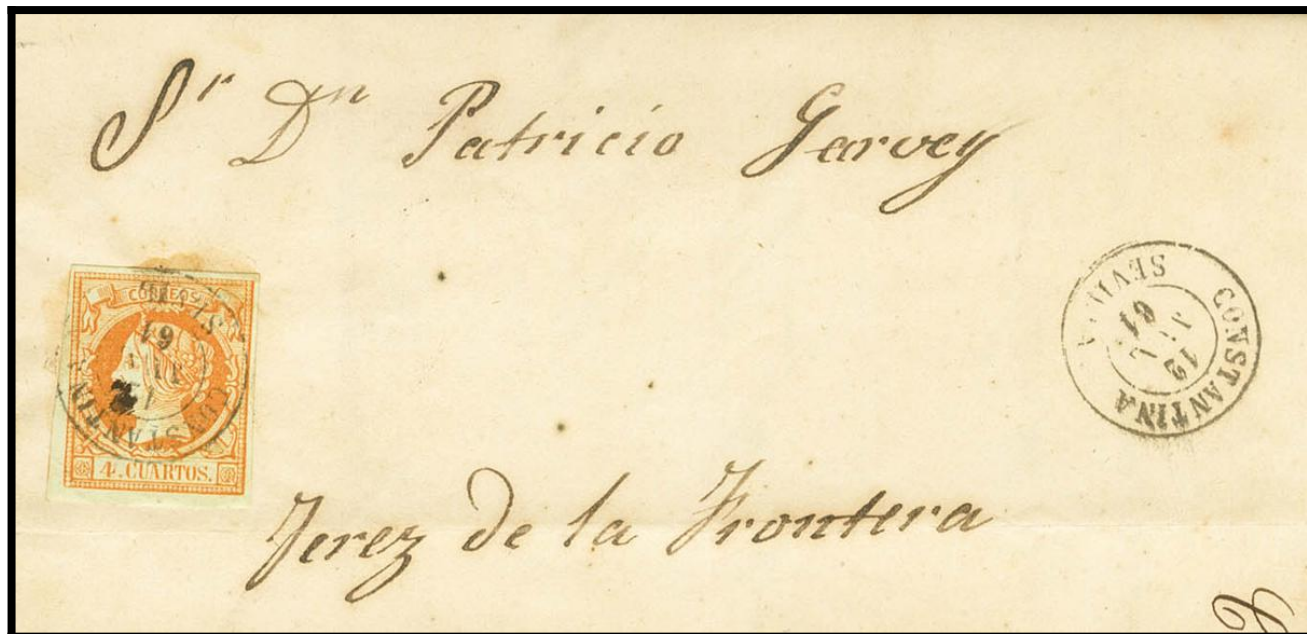 Sr Dn Patricio Garvey
CORREOS
61
CONSTANTIN
4. CUARTOS.
CONSTANTINA
12
JUL
61
SEVILLA
Jerez de la Frontera